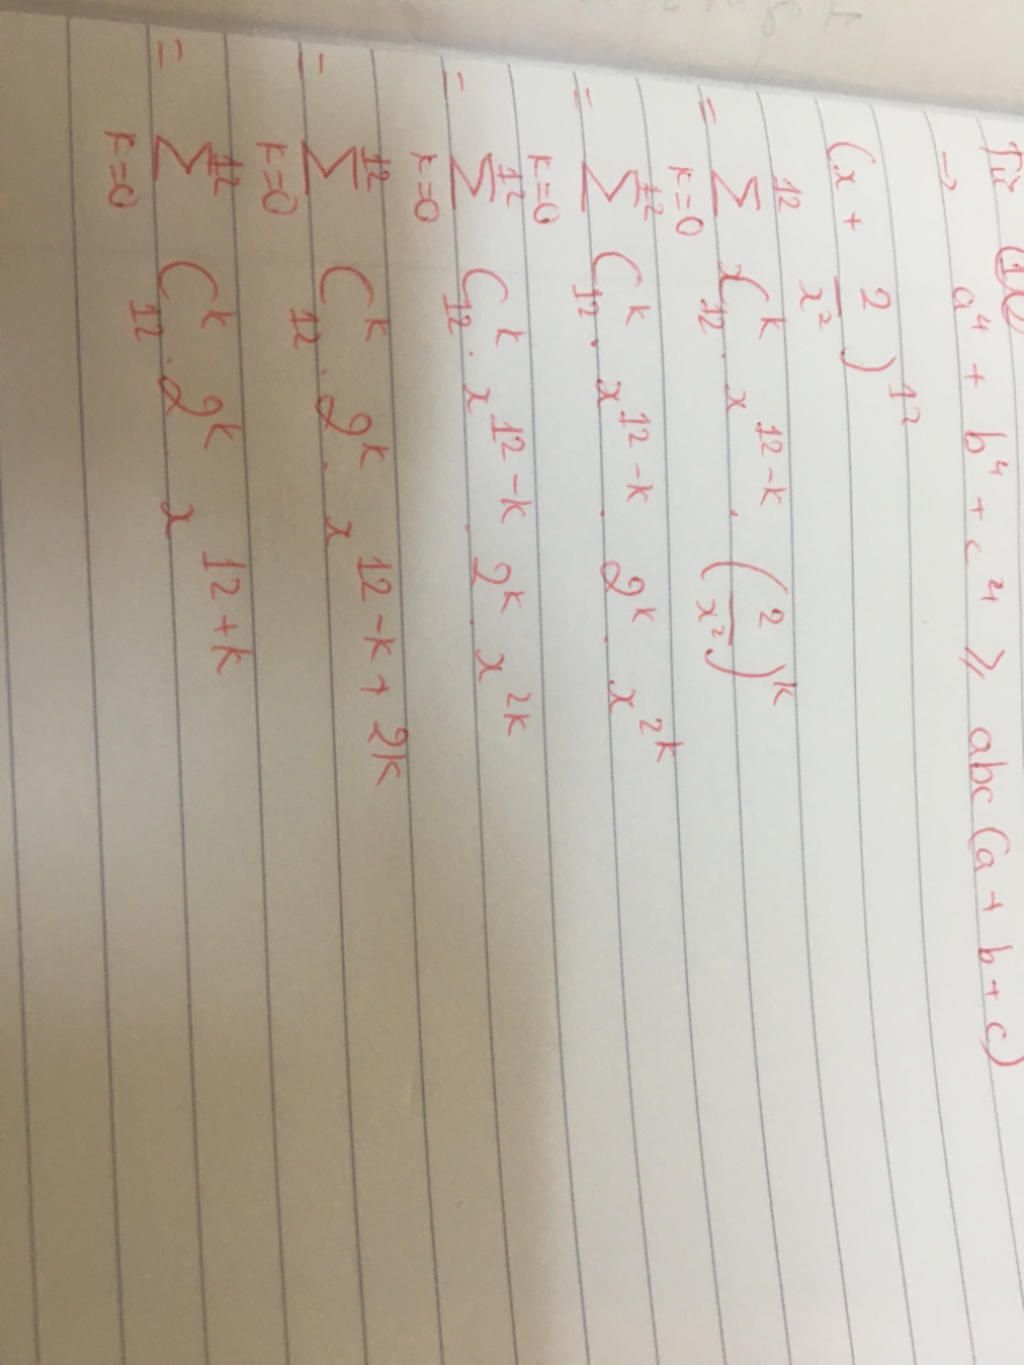 Từ (1)
→ a⁴ + b⁴ + c⁴ ≥ abc (a + b + c)
(x + 2/x²)¹²
= ∑_{k=0}^{12} C_{12}^k . x^{12-k} . (2/x²)^k
= ∑_{k=0}^{12} C_{12}^k . x^{12-k} . 2^k . x^{2k}
= ∑_{k=0}^{12} C_{12}^k . x^{12-k} . 2^k . x^{2k}
= ∑_{k=0}^{12} C_{12}^k . 2^k . x^{12-k+2k}
= ∑_{k=0}^{12} C_{12}^k . 2^k . x^{12+k}